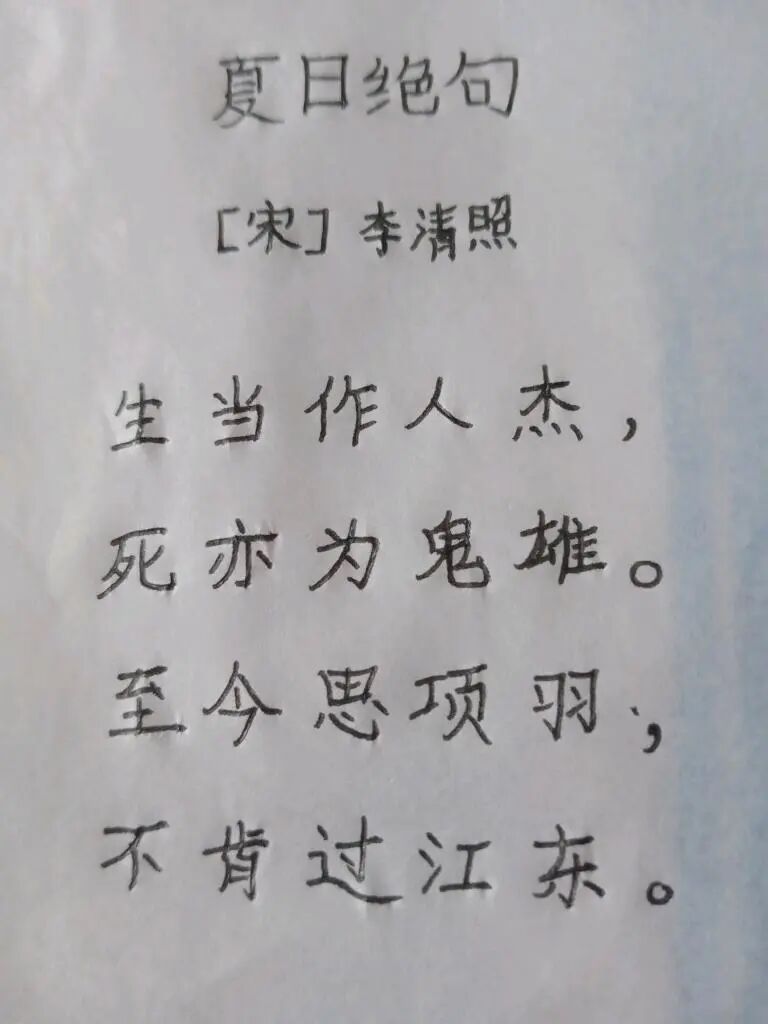 夏日绝句
[宋] 李清照
生当作人杰，
死亦为鬼雄。
至今思项羽，
不肯过江东。